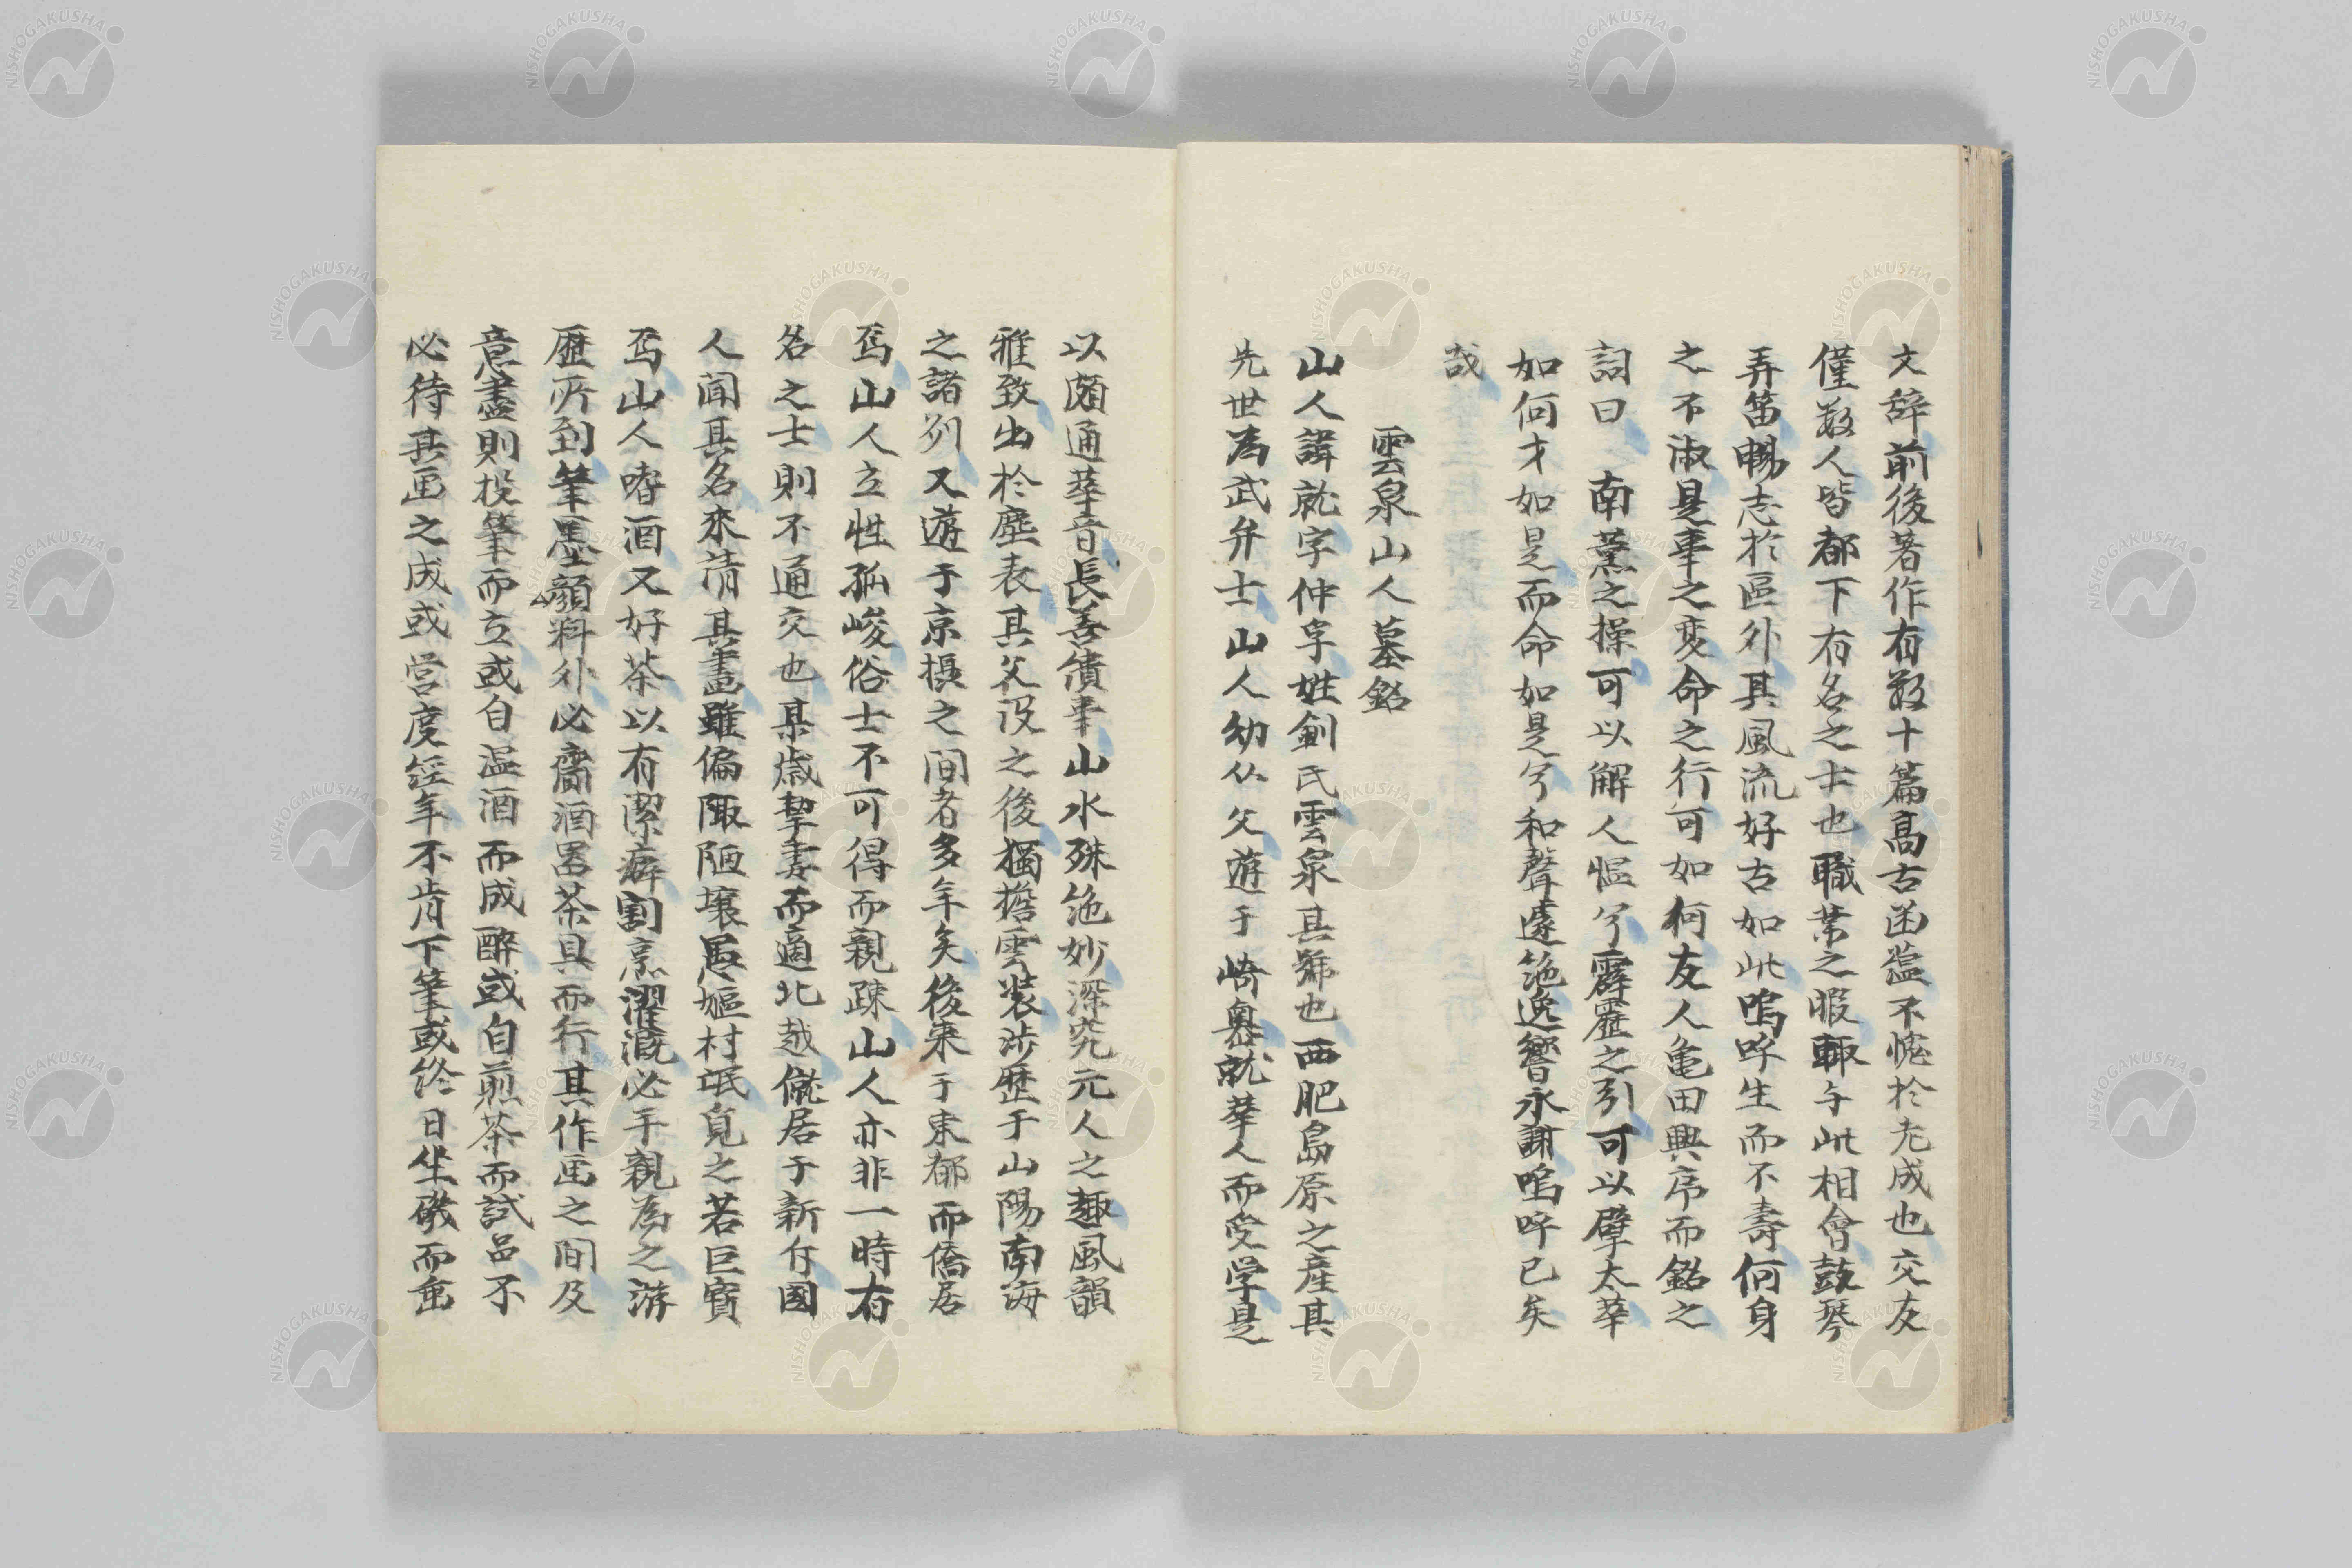 文辞前後著作有数十篇高古函蓋不愧於先成也交友
僅数人皆都下有名之士也職業之暇輙与此相會鼓琴
弄笛暢志於區外其風流好古如此嗚呼生而不壽何身
之不淑是事之変命之行可如何友人亀田興序而銘之
詞曰 南薫之操可以解人愠兮霹靂之引可以擘太華
如何才如是而命如是兮和聲遽絶逸響永謝嗚呼已矣
哉
雲泉山人墓銘
山人諱就字仲孚姓釧氏雲泉其号也西肥島原之産其
先世為武弁士山人幼从父遊于崎奥就華人而受学是
以頗通華音長善繢事山水殊絶妙深究元人之趣風韻
雅致出於塵表其父没之後獨擔雲装渉歴于山陽南海
之諸列又遊于京摂之間者多年矣後来于東都而僑居
焉山人立性孤峻俗士不可得而親疎山人亦非一時有
名之士則不通交也某歳挈妻而適北越僦居于新付國
人聞其名来請其畫雖偏陬陋壤愚嫗村氓覓之若巨寶
焉山人嗜酒又好茶以有潔癖割烹濯漑必手親為之游
歴所到筆墨顔料外必齎酒器茶具而行其作画之間及
意盡則投筆而立或自温酒而成酔或自煎茶而試品不
必待其画之成或営度経年不肯下筆或終日坐礒而垂
NISHOGAKUSHA